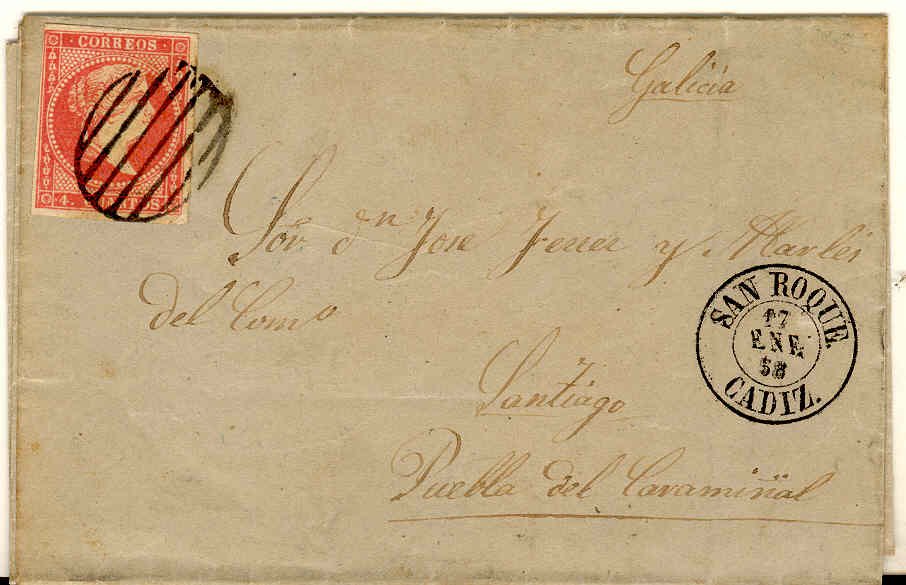 CORREOS
4. CUARTOS
Galicia
Sor. dn Jose Ferrer y Marles
del Como
SAN ROQUE.
17
ENE
58
CADIZ.
Santiago
Puebla del Caramiñal